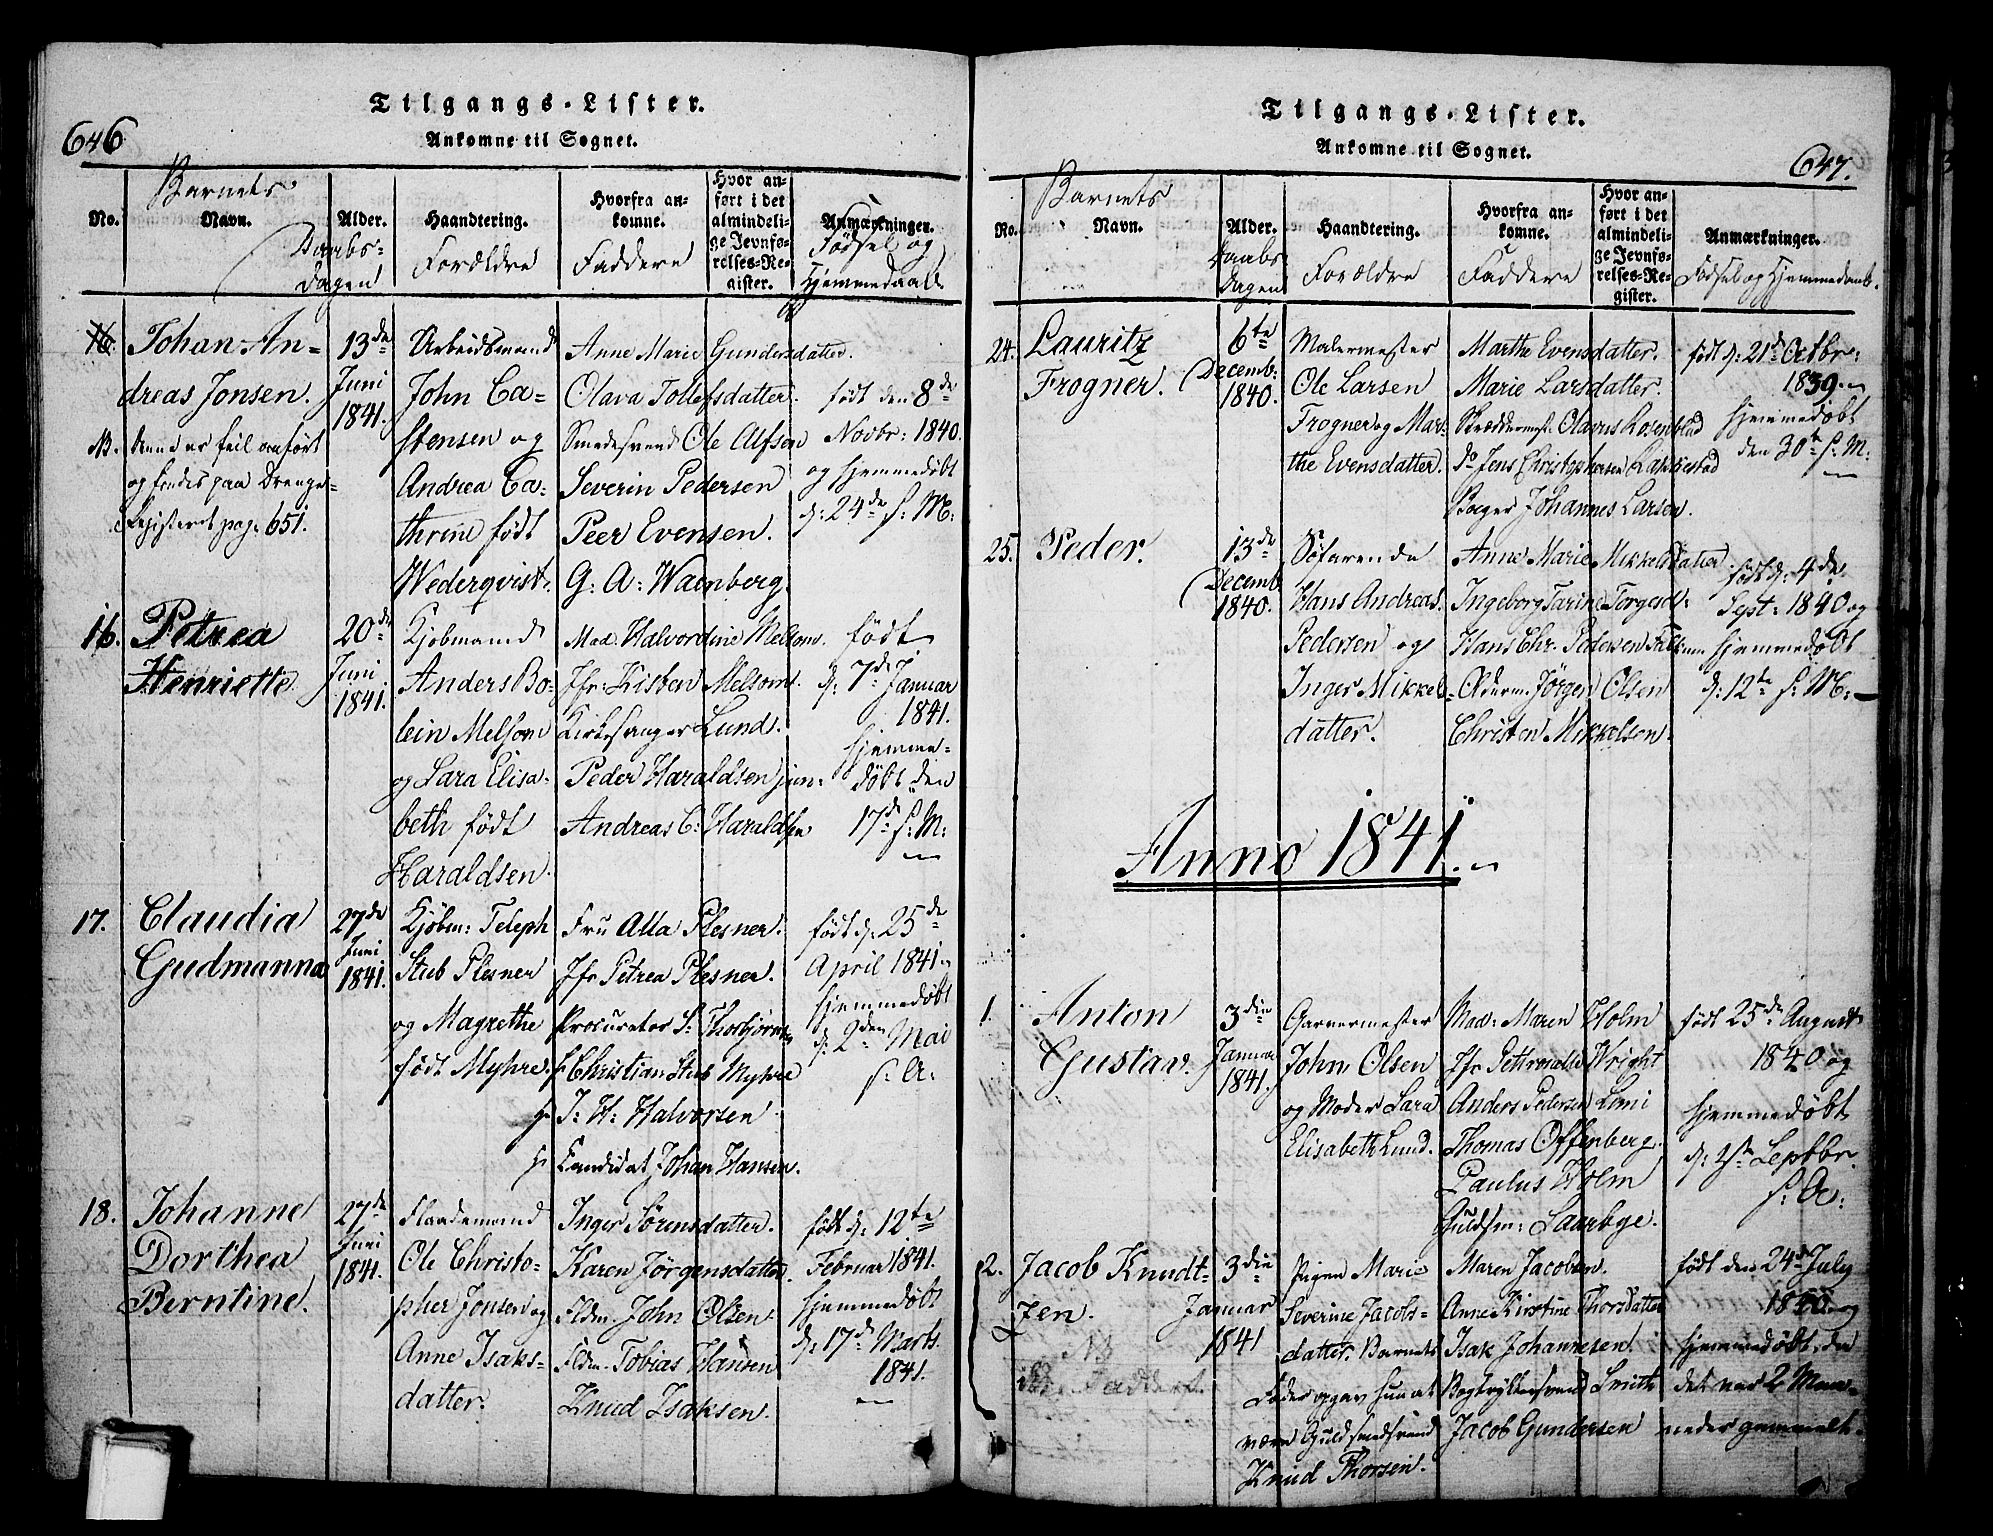 Tilgangs-Lister.
646
Ankomne til Sognet.
No.
Barnets
Navn.
Daabs-
dagen
Alder.
Haandtering.
Forældre
Hvorfra an-
komne.
Faddere
Hvor an-
ført i det
almindeli-
ge Jevnfø-
relses-Re-
gister.
Anmærkninger.
Fødsel og
Hjemmedaab
16.
Johan An-
dreas Jonsen.
NB. denne er feil anført
og findes paa Drenge-
Registeret pag. 651.
13de
Juni
1841.
Arbeidsmand
John Ca-
stensen og
Andrea Ca-
thrine født
Wederqvist.
Anne Marie Gundersdatter.
Olava Tollefsdatter.
Smedesvend Ole Alfsen
Severin Pedersen
Peer Evensen.
G. A. Waenberg.
født den 8de
Novbr: 1840.
og hjemmedøbt
d: 24de s: M:
16.
Petrea
Henriette.
20de
Juni
1841.
Kjøbmand
Anders Bo-
lein Melsom
og Sara Elisa-
beth født
Haraldsen.
Mad. Halvordine Melsom.
Jfr: Kisten Melsom.
Kirkesanger Lund.
Peder Haraldsen jun:
Andreas C: Haraldsen
født
d: 7de Januar
1841.
hjemme-
døbt den
17de s: M:
17.
Claudia
Gudmanna
27de
Juni
1841.
Kjøbm: Teleph
Stub Plesner
og Magrethe
født Myhre.
Fru Alla Plesner.
Jfr Petrea Plesner.
Procurator S: Thorbjørn-
Christian Stub Myhre
Hr I: H: Halvorsen
Hr Candidat Johan Hansen.
født d: 25de
April 1841.
hjemmedøbt
d: 2den Mai
s: A:
18.
Johanne
Dorthea
Berntine.
27de
Juni
1841.
Flaademand
Ole Christo-
pher Jonsen og
Anne Isaks-
datter.
Inger Sørensdatter.
Karen Jørgensdatter.
Fldm. John Olsen.
Fldm. Tobias Hansen
Knud Isaksen.
født d: 12te
Februar 1841.
hjemmedøbt
d: 17de Marts.
1841.
Tilgangs-Lister.
Ankomne til Sognet.
647.
No.
Barnets
Navn.
Alder.
Daabs
dagen
Haandtering.
Forældre
Hvorfra an-
komne.
Faddere
Hvor an-
ført i det
almindeli-
ge Jevnfø-
relses-Re-
gister.
Anmærkninger.
Fødsel og Hjemmedaab.
24.
Lauritz
Frogner.
6te
Decemb:
1840.
Malermester
Ole Larsen
Frogner og Mar-
the Evensdatter.
Marthe Evensdatter.
Marie Larsdatter.
Skræddermest. Olavus Rosenblad
do Jens Christophersen
Bager Johannes Larsen.
født d: 21de Octbr:
1839.
hjemmedøbt
den 30te s: M:
25.
Peder.
13de
Decemb
1840.
Søfarende
Hans Andreas
Pedersen og
Inger Mikkels-
datter.
Anne Marie Mikkelsdatter
Ingeborg Tarine Torgesd:
Hans Chr. Pedersen
Olderm. Jørgen Olsen
Christen Mikkelsen.
født d: 4de
Sept: 1840 og
hjemmedøbt
d: 12te s: M:
Anno 1841.
1.
Anton
Gustav.
3die
Januar
1841.
Garvermester
John Olsen
og Moder Sara
Elisabeth Lund.
Mad: Maren Holm
Jfr Pettronelle Wright
Anders Pedersen
Thomas Offenberg.
Paulus Holm
Guldsm: Saarbye.
født 25de August
1840 og
hjemmedøbt
d: 1ste Septbr.
s: A:
2.
Jacob Knudt-
zen.
NB
Faddere
3die
Januar
1841
Pigen Marie
Severine Jacobs-
datter. Barnets
Fader opgav hun at
være Guldsmedsvend
Knud Thorsen.
Maren Jacobsen.
Anne Kirstine Thorsdatter
Isak Johannesen.
Bogtrykkersvend Smith
Jacob Gundersen
født den 24de July
1840 og
hjemmedøbt, da
det var 2 Maa-
neder gammelt.